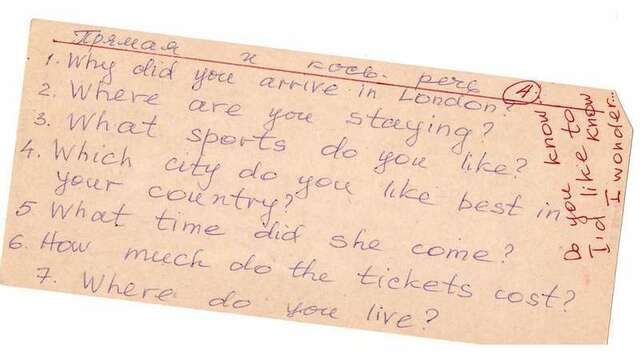 Прямая и косв. речь
4.
1. Why did you arrive in London?
2. Where are you staying?
3. What sports do you like?
4. Which city do you like best in
your country?
5 What time did she come?
6. How much do the tickets cost?
7. Where do you live?
Do you know
I'd like to know
I wonder...